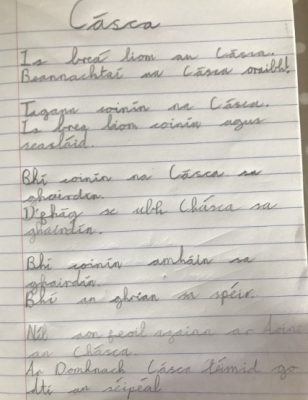 Cásca
Is breá liom an Cásca.
Beannachtaí na Cásca oraibh!
Tagann coinín na Cásca.
Is breg liom coinín agus
seacláid.
Bhí coinín na Cásca sa
ghairdín.
D'fhág se ubh Chásca sa
ghairdín.
Bhí coinín amháin sa
ghairdín.
Bhí an ghrian sa spéir.
Níl aon feoil againn ar
an Chásca.
Ar Domhnach Cásca téimid go
dtí an séipéal